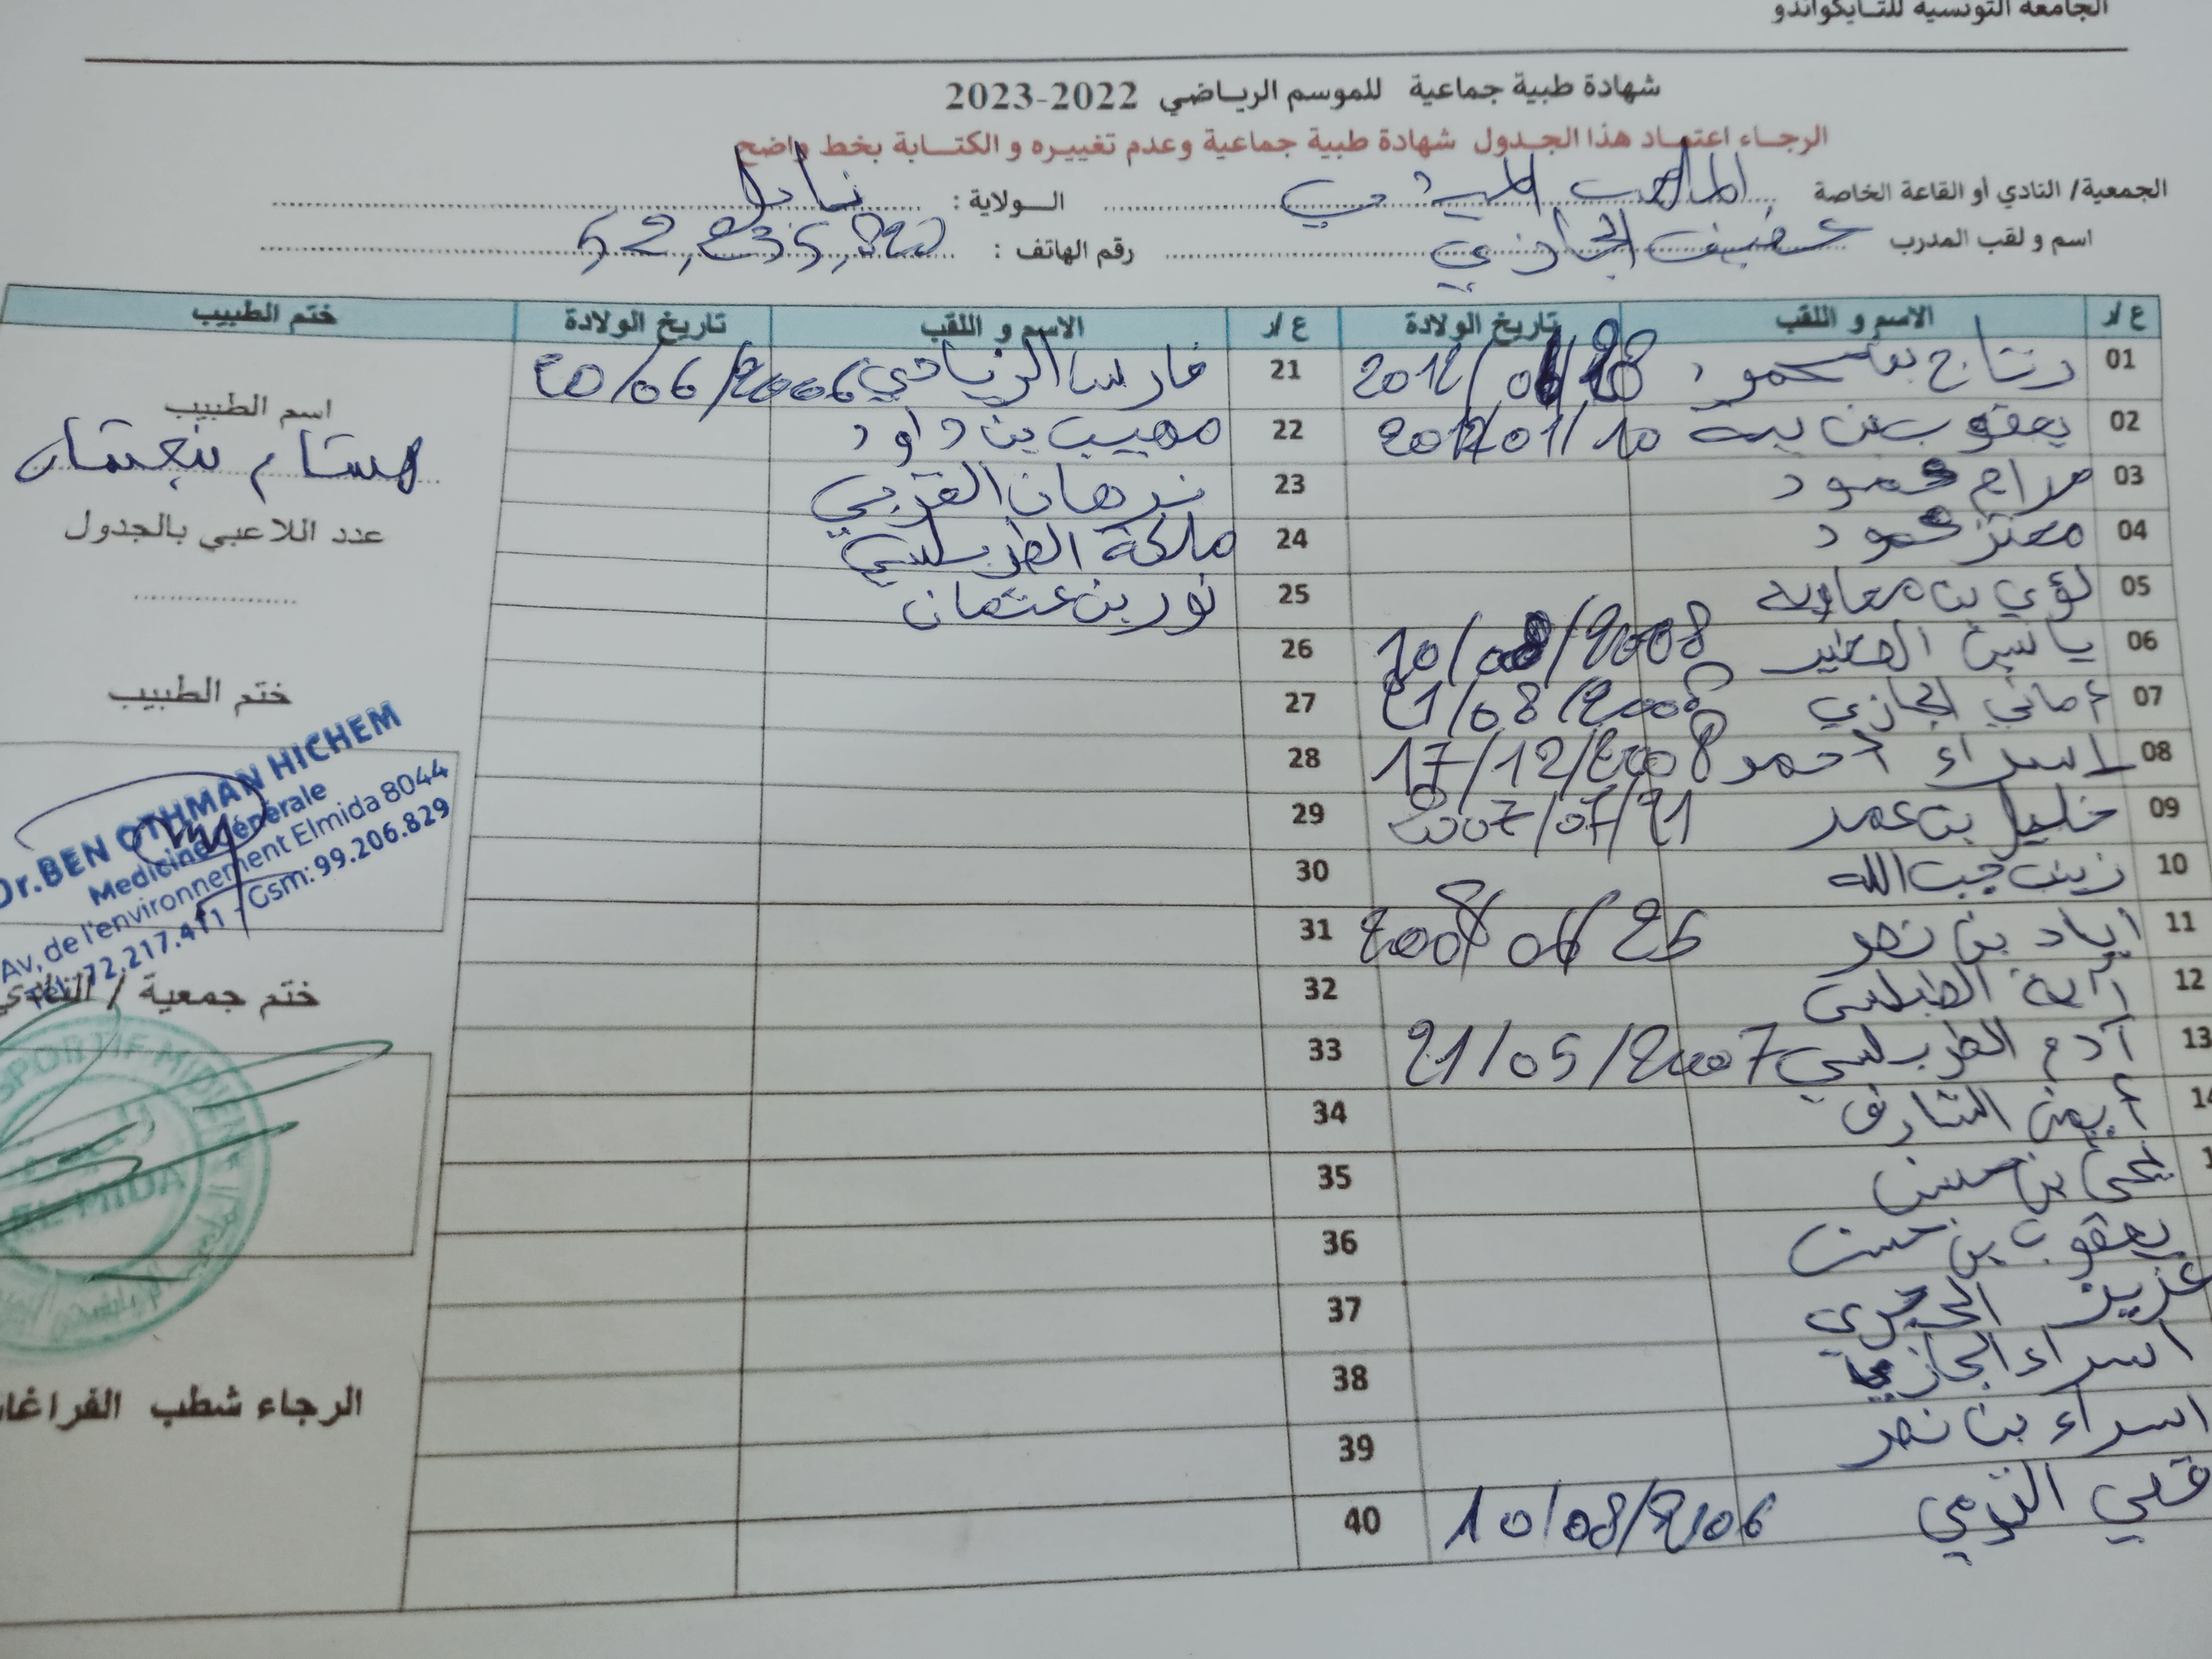 الجامعة التونسية للتايكواندو
شهادة طبية جماعية للموسم الرياضي 2022-2023
الرجاء اعتماد هذا الجدول شهادة طبية جماعية وعدم تغييره و الكتابة بخط واضح
الجمعية/ النادي أو القاعة الخاصة الملعب الميدي الولاية : نابل
اسم و لقب المدرب عفيف الجازي رقم الهاتف :
ع/ر الاسم و اللقب تاريخ الولادة ع/ر الاسم و اللقب تاريخ الولادة ختم الطبيب
01 رتاج 21 فارس الزيادي 20/06/2006
02 يعقوب بن 2012/01/10 22 مهيب بن داود
03 محمود 23 نرهان القزبي
04 معتز محمود 24 ملكة الطربلسي
05 لؤي بن معاوية 25 نور بن عثمان
06 ياسين 10/08/2008 26
07 أماني الجازي 21/08/2008 27
08 اسراء احمد 17/12/2008 28
09 خليل بن عمر 2007/07/21 29
10 زينب جب الله 30
11 اياد بن نصر 2008/06/25 31
12 آية 32
13 آدم الطربلسي 21/05/2007 33
أيمن الشارف 34
يحيى بن حسين 35
يعقوب بن حسن 36
عزيز 37
اسراء الجازي 38
اسراء بن نصر 39
قصي 10/08/2006 40
اسم الطبيب
هشام بنعثمان
عدد اللاعبي بالجدول
ختم الطبيب
Dr.BEN OTHMAN HICHEM
Medicine Générale
Av, de l'environnement Elmida 8044
Tél: 72.217.411 - Gsm: 99.206.829
ختم جمعية / النادي
SPORTIF MIDIEN
EL MIDA
الرجاء شطب